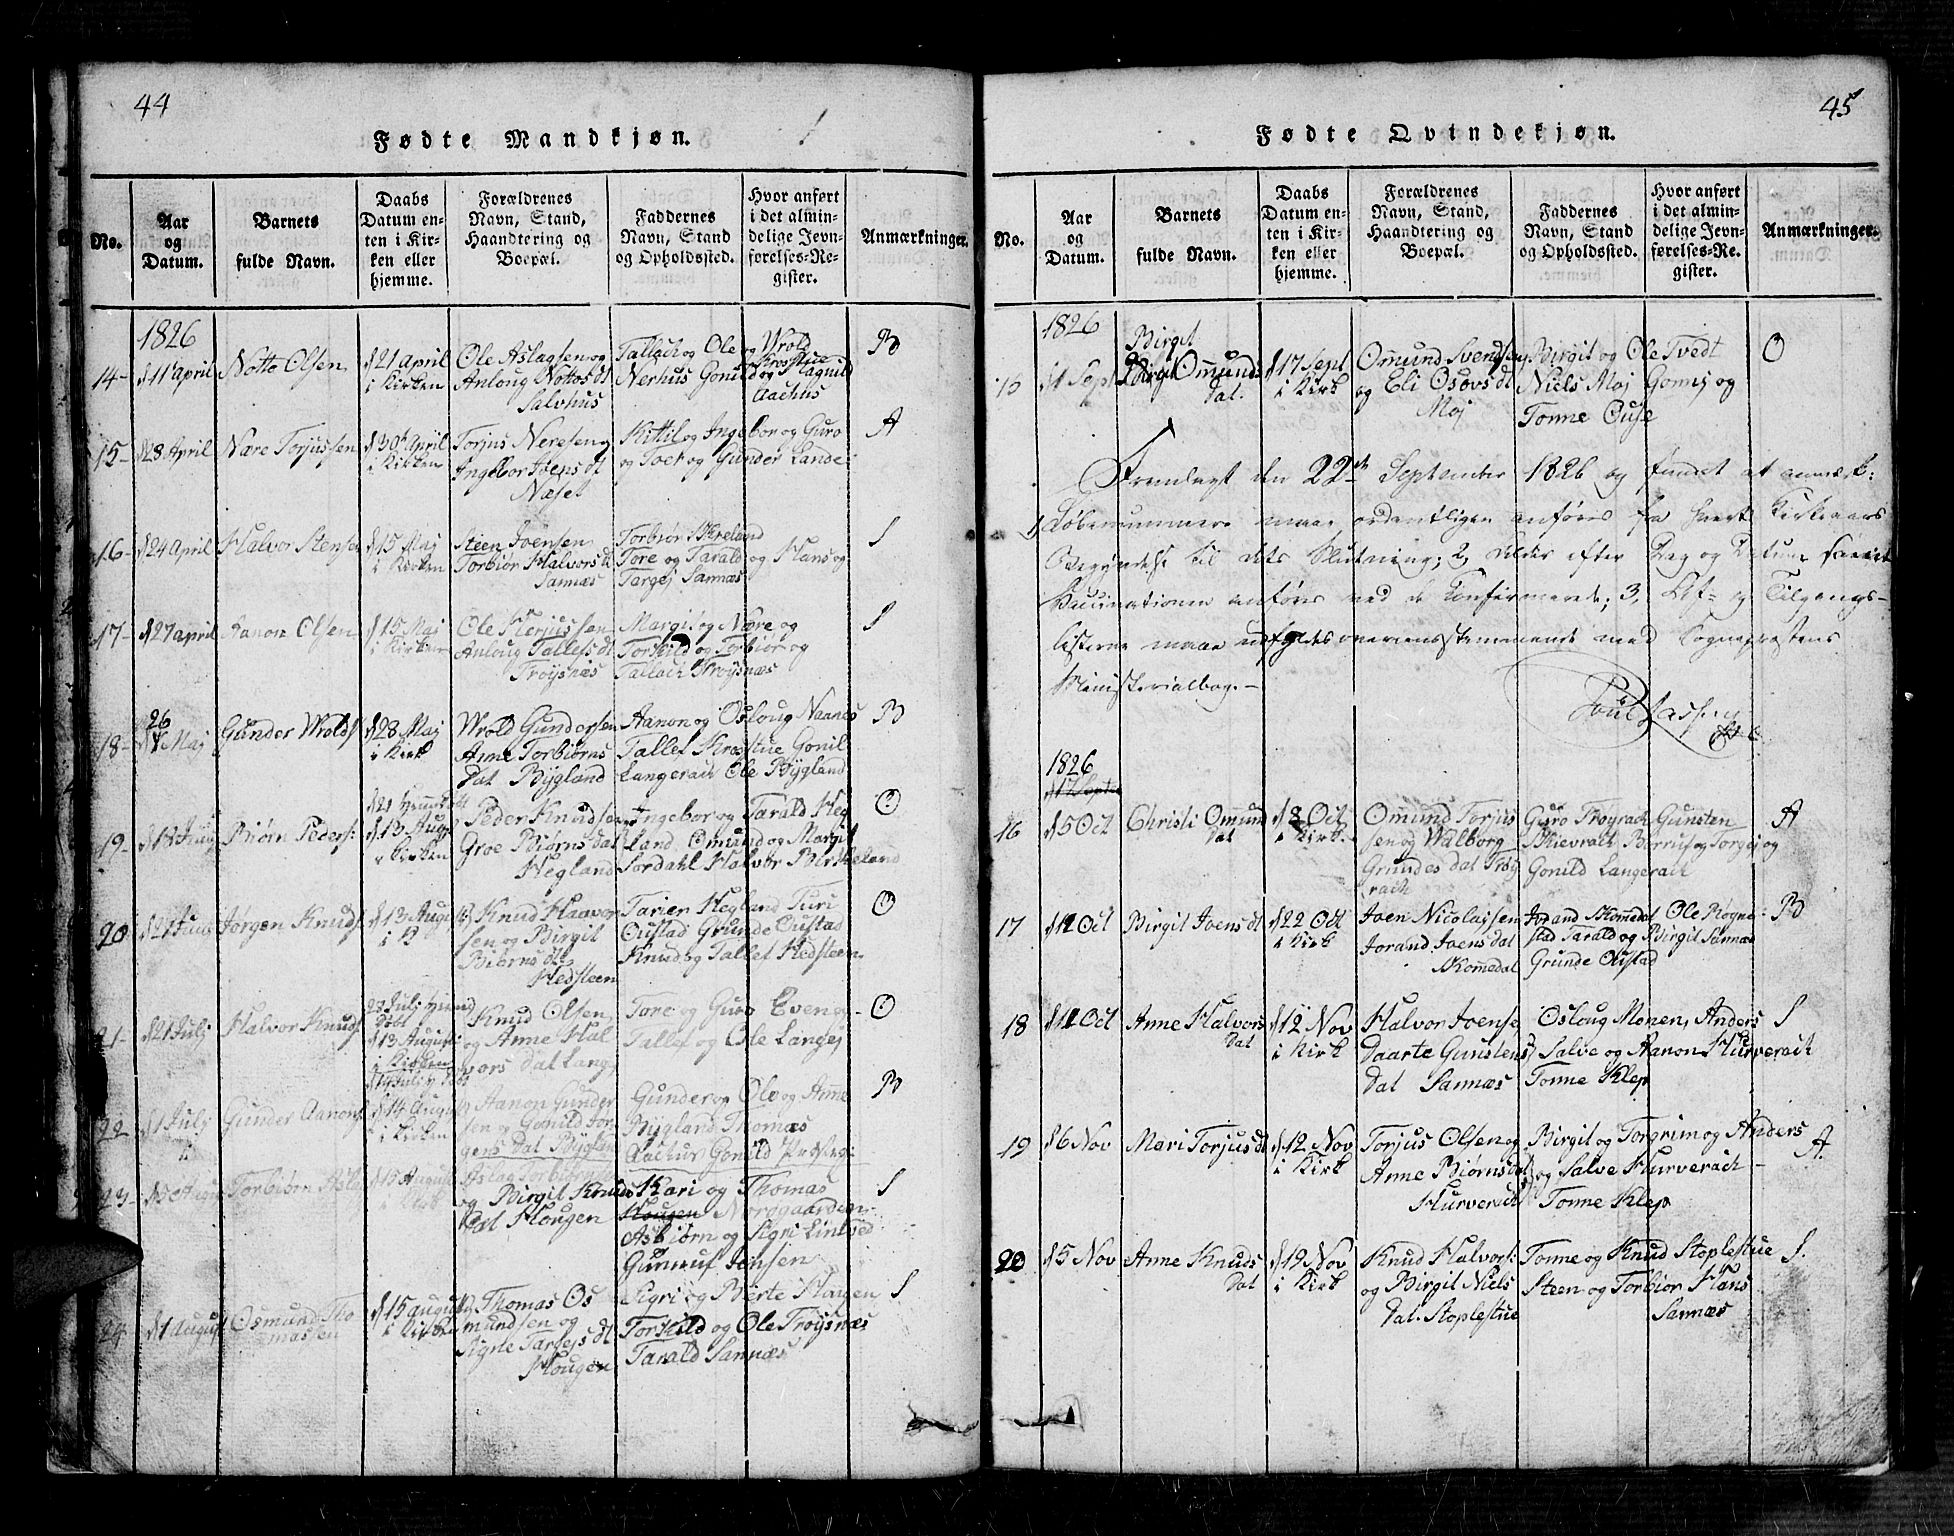 44
Fødte Mandkjøn.
No.
Aar
og
Datum.
Barnets
fulde Navn.
Daabs
Datum en-
ten i Kir-
ken eller
hjemme.
Forældrenes
Navn, Stand,
Haandtering og
Boepæl.
Faddernes
Navn, Stand
og Opholdssted.
Hvor anført
i det almin-
delige Jevn-
førelses-Re-
gister.
Anmærkninger.
1826
14- d 11 April Notto Olsen d 21 April i Kirken
Ole Aslagsen og
Anloug Nottos dt
Salvhus
Tallach og Ole og Wrold
Nerhus Gonild og Ragnild
Aachus
B
15- d 28 April Nære Torjussen d 30 April i Kirken
Torjus Neresen og
Ingebor Joens dt
Næset
Kittil og Ingebor og Guro
og Joer og Gunder Lande:
A
16- d 24 April Halvor Stensen d 15 Maj i Kirken
Steen Joensen
Torbiør Halvors d
Sannæs
Torbiør Skreland
Tore og Tarald og Hans og
Targej Sannæs
S
17- d 27 april Aanon Olsen d 15 Maj i Kirken
Ole Terjussen
Anloug Tallefs dt
Frøysnæs
Margit og Nære og
Torkild og Torbiør og
Tallach Frøysnæs
S
18- 26 Maj Gunder Wrolds d 28 Maj i Kirk
Wrold Gundersen
Anne Torbiørns
Dat Bygland
Aanon og Osloug Naanes
Tallef Krostue Gonil
Langerach Ole Bygland
B
19- Biørn Peders: d 13 Aug i Kirken
Peder Knudsen
Groe Biørns dat
Hegland
Ingebor og Tarald Heg
land Omund og Margit
Sordahl Halvor Birkeland
O
20 Jørgen Knuds d 13 Augu i K
Knud Haavor
sen og Birgit
Biørns dt
Hedsteen
Tarier Hegland Turi
Oustad Grunde Oustad
Knud og Tallef Hedsteen
O
21- d 21 Julj Halvor Knuds
d 13 August i Kirken
Knud Olsen
og Anne Hal
vors dat Langej
Tore og Guro Even og
Tallef og Ole Langej
O
22 d 1 Julj Gunder Aanons d 14 August i Kirken
Aanon Gunder
sen og Gonild Jor
gens Dat Bygland
Gunder og Ole og Anne
Bygland Thomas
Aachus Gonild
B
23- Torbiørn Aslag d 15 August i Kirk
Aslag Torbiørnsen
og Birgit Knuds
Dat Hougen
Kari og Thomas
Hougen Norogaarden
Asbiørn og Sigri Lintved
Jensen
S
24 d 1 August Osmund Tho
massen
d 15 august i Kirken
Thomas Os
mundsen og
Signe Targejs dt
Hougen
Sigri og Berte Haugen
Torkild og Ole Frøysnæs
Tarald Sannæs
S
45
Fødte Qvindekjøn.
No.
Aar
og
Datum.
Barnets
fulde Navn.
Daabs
Datum en-
ten i Kir-
ken eller
hjemme.
Forældrenes
Navn, Stand,
Haandtering og
Boepæl.
Faddernes
Navn, Stand
og Opholdssted.
Hvor anført
i det almin-
delige Jevn-
førelses-Re-
gister.
Anmærkninger.
1826
15 d 1 Sept Birgit Omunds
Dat.
d 17 Sept i Kirk
Omund Svendsen
og Eli Osovs dt
Moj
Birgit og Ole Tvedt
Niels Moj Gonnij og
Tonne Ouse
O
Fremlagt den 22de September 1826 og fundet at anmærk:
1, Løbenummere maae ordentligen anføres fra hvert Kirkeaars
Begyndelse til dets Slutning; 2, Tilder efter Dag og Datum samt
Vaccinationen anføres ved de Confirmerede; 3, Af- og Tilgangs-
listerne maae udfyldes overensstemmende med Sognepræstens
Ministerialbog.-
1826
16 d 5 Oct Christi Omund
Dat
d 8 Oct i Kirk.
Omund Torjus
sen og Walborg
Grundes dat Frøy
rach
Guro Frøyrach Gunsten
Skievrach Berruf og Torgej og
Gonild Langerach
A
17 d 12 Oct Birgit Joens dt d 22 Odt i Kirk
Joen Nicolajsen
Jorand Joens dat
Skomedal
Jorand Skomedal Ole Røgne:
stad Tarald og Birgit Sannæs
Grunde Oustad
B
18 d 11 Oct Anne Halvors
Dat
d 12 Nov i Kirk
Halvor Joense
Daarte Gunstens
dat Sannæs
Osloug Monen, Anders
Salve og Aanon Hurverach
Tonne Klep
S
19 d 6 Nov Mari Torjus dt d 12 Nov i Kirk
Torjus Olsen og
Anne Biørns dat
Hurverach
Birgit og Torgrim og Anders
og Salve Hurverach
Tonne Klep
A.
20 d 5 Nov Anne Knuds
Dat
d 19 Nov i Kirk
Knud Halvors:
og Birgit Niels
Dat. Stoplestue
Tonne og Knud Stoplestue
Steen og Torbior Hans
Sannæs
S.